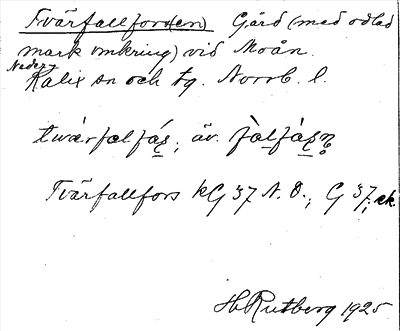 Tvärfallforsen) Gård (med odlad
mark omkring) vid Moån.
Neder-
Kalix sn och tg. Norrb. l.
tvärfalfás; äv. fàlfàsṇ
Tvärfallfors kG 37 N.O., G 37; ek.
H Rutberg 1925